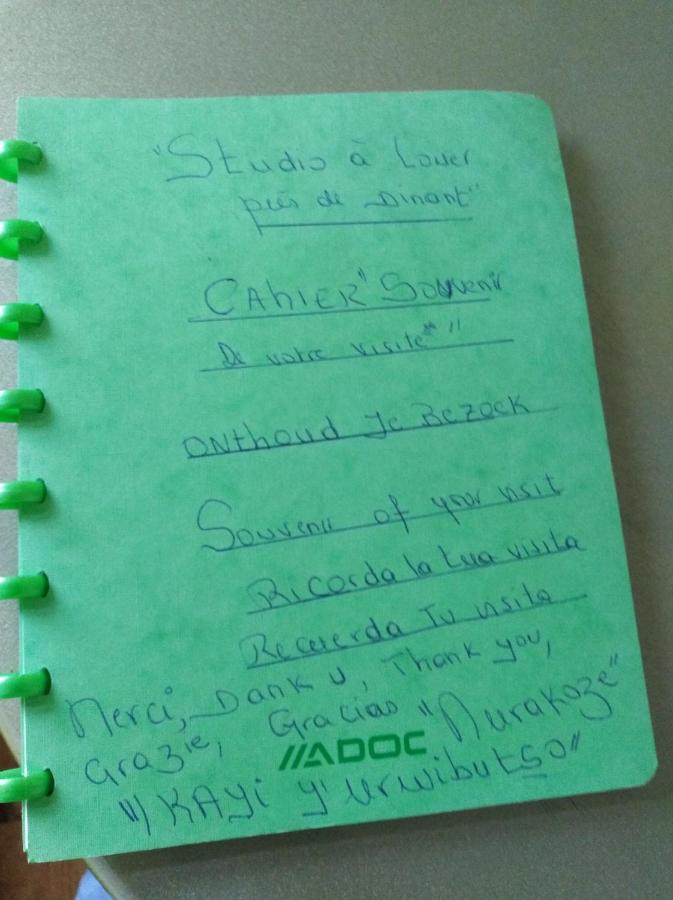 "Studio à Louer
près de Dinant"
CAhIER "Souvenir
De votre visite* "
ONthoud Je BeZOEK
Souvenir of your visit
Ricorda la tua visita
Recuerda Tu visita
Merci, Dank U, Thank you,
Grazie, Gracias "Murakoze"
//ADOC
"KAyi y'urwibutso"